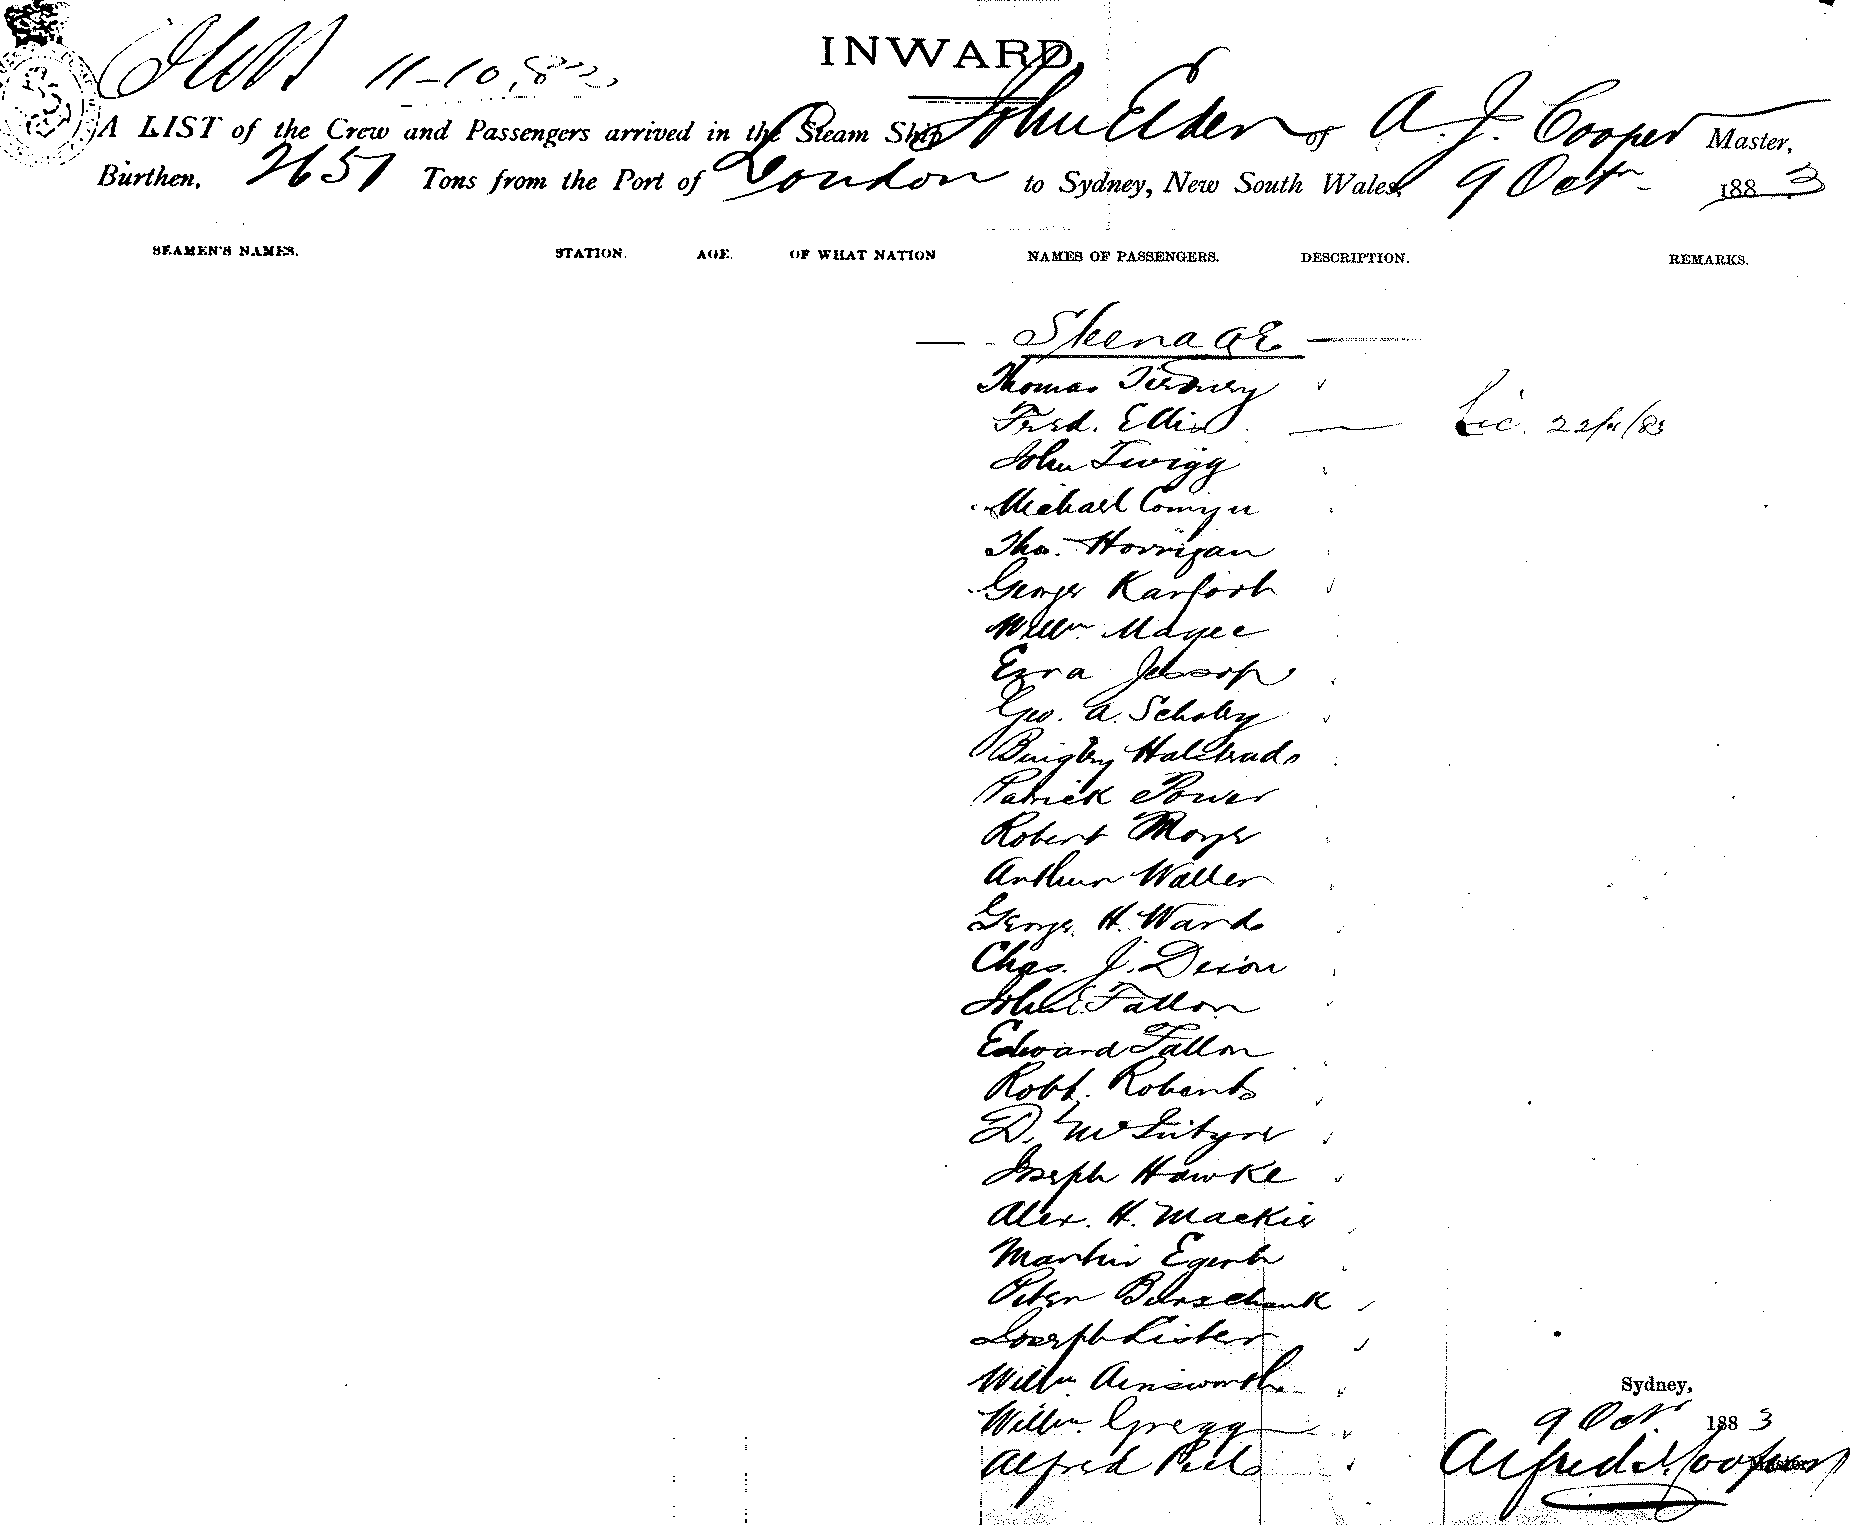 INWARD.
11-10.83
A LIST of the Crew and Passengers arrived in the Steam Ship John Elder of A. J. Cooper Master,
Burthen, 2651 Tons from the Port of London to Sydney, New South Wales, 9 Octr 1883
SEAMEN'S NAMES. STATION. AGE. OF WHAT NATION NAMES OF PASSENGERS. DESCRIPTION. REMARKS.
Steerage
Thomas Tierney
Fred. Ellis — Lic. 22/11/83
John Twigg
Michael Comyn
Tho. Horrigan
George Karfoot
Willm Magee
Ezra Jessop
Geo. A. Scholey
Bingley Halstead
Patrick Power
Robert Moyes
Arthur Waller
George H. Ward
Chas. J. Dixon
John Fallon
Edward Fallon
Robt. Roberts
D. McIntyre
Joseph Hawke
Alex. H. Mackie
Martin Egerts
Peter
Joseph Lister
Willm Ainsworth
Willm Gregg
Alfred Peel
Sydney,
9 Octr 1883
Alfred J. Cooper
Master